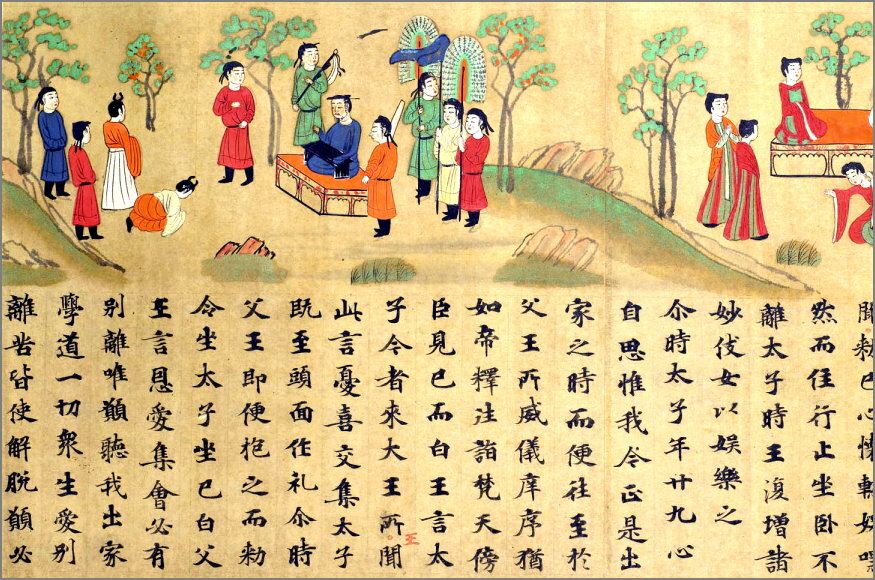 聞勅已心懷
然而住行止坐卧不
離太子時王復增諸
妙伎女以娛樂之
尒時太子年廿九心
自思惟我今正是出
家之時而便往至於
父王所威儀庠序猶
如帝釋往詣梵天傍
臣見已而白王言太
子今者來大王所聞
王
此言憂喜交集太子
既至頭面作礼尒時
父王即便抱之而勅
令坐太子坐已白父
王言恩愛集會必有
別離唯願聽我出家
學道一切衆生愛別
離苦皆使解脫願必